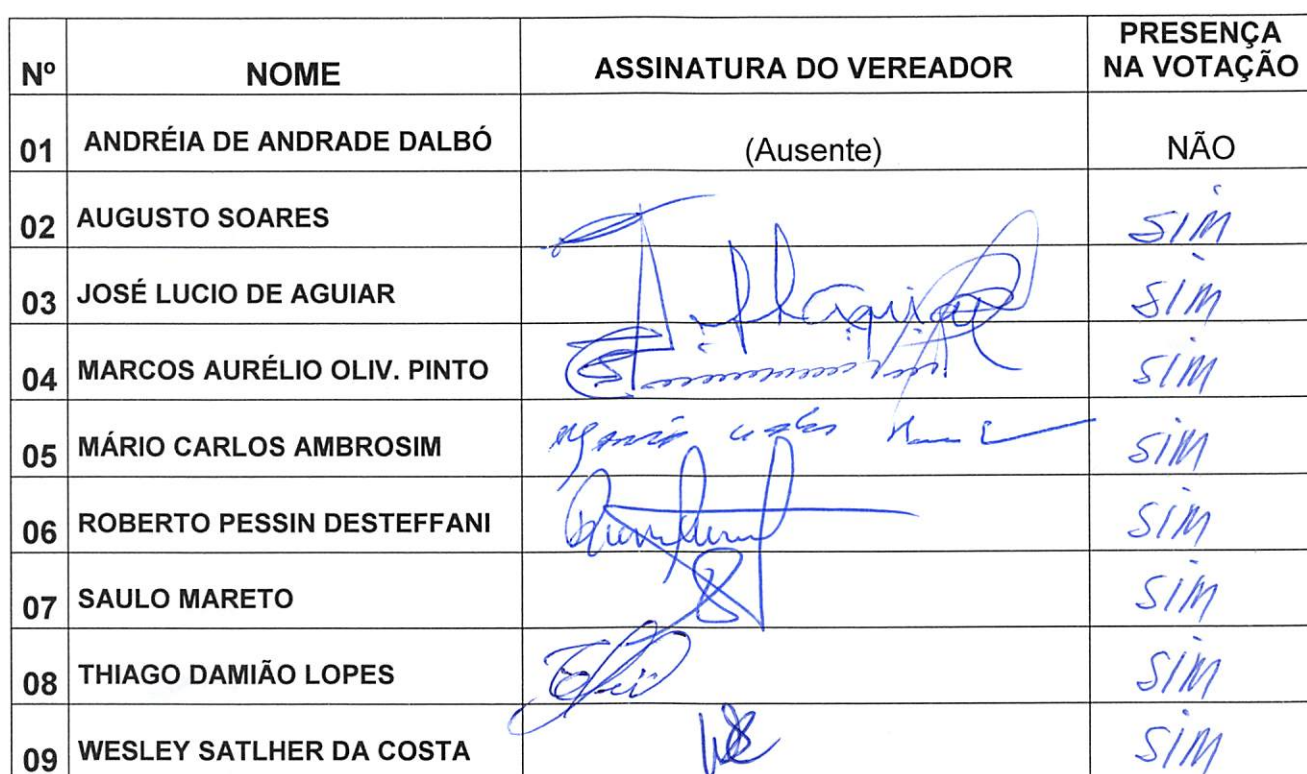 Nº NOME ASSINATURA DO VEREADOR PRESENÇA NA VOTAÇÃO
01 ANDRÉIA DE ANDRADE DALBÓ (Ausente) NÃO
02 AUGUSTO SOARES SIM
03 JOSÉ LUCIO DE AGUIAR SIM
04 MARCOS AURÉLIO OLIV. PINTO SIM
05 MÁRIO CARLOS AMBROSIM SIM
06 ROBERTO PESSIN DESTEFFANI SIM
07 SAULO MARETO SIM
08 THIAGO DAMIÃO LOPES SIM
09 WESLEY SATLHER DA COSTA SIM